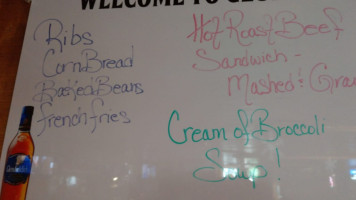 WELCOME TO
Ribs
Corn Bread
Baked Beans
french fries
Hot Roast Beef
Sandwich -
Mashed &
Cream of Broccoli
Soup!